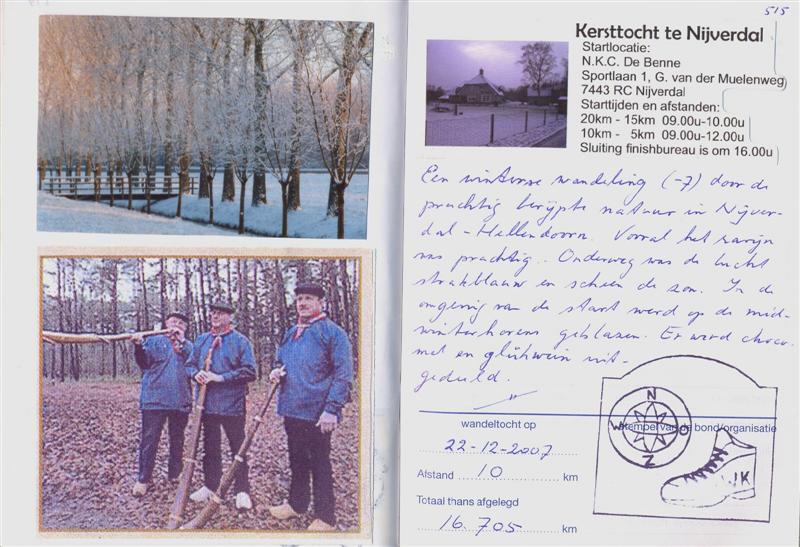 515
Kersttocht te Nijverdal
Startlocatie:
N.K.C. De Benne
Sportlaan 1, G. van der Muelenweg
7443 RC Nijverdal
Starttijden en afstanden:
20km - 15km 09.00u-10.00u
10km - 5km 09.00u-12.00u
Sluiting finishbureau is om 16.00u
Een winterse wandeling (-7) door de
prachtig berijpte natuur in Nijver-
dal - Hellendoorn. Vooral het ravijn
was prachtig. Onderweg was de lucht
strakblauw en scheen de zon. In de
omgeving van de start werd op de mid-
winterhorens geblazen. Er werd choco-
mel en glühwein uit-
gedeeld.
wandeltocht op
stempel van de bond/organisatie
22-12-2007
Afstand 10 km
Totaal thans afgelegd
16.705 km
N
W O
Z